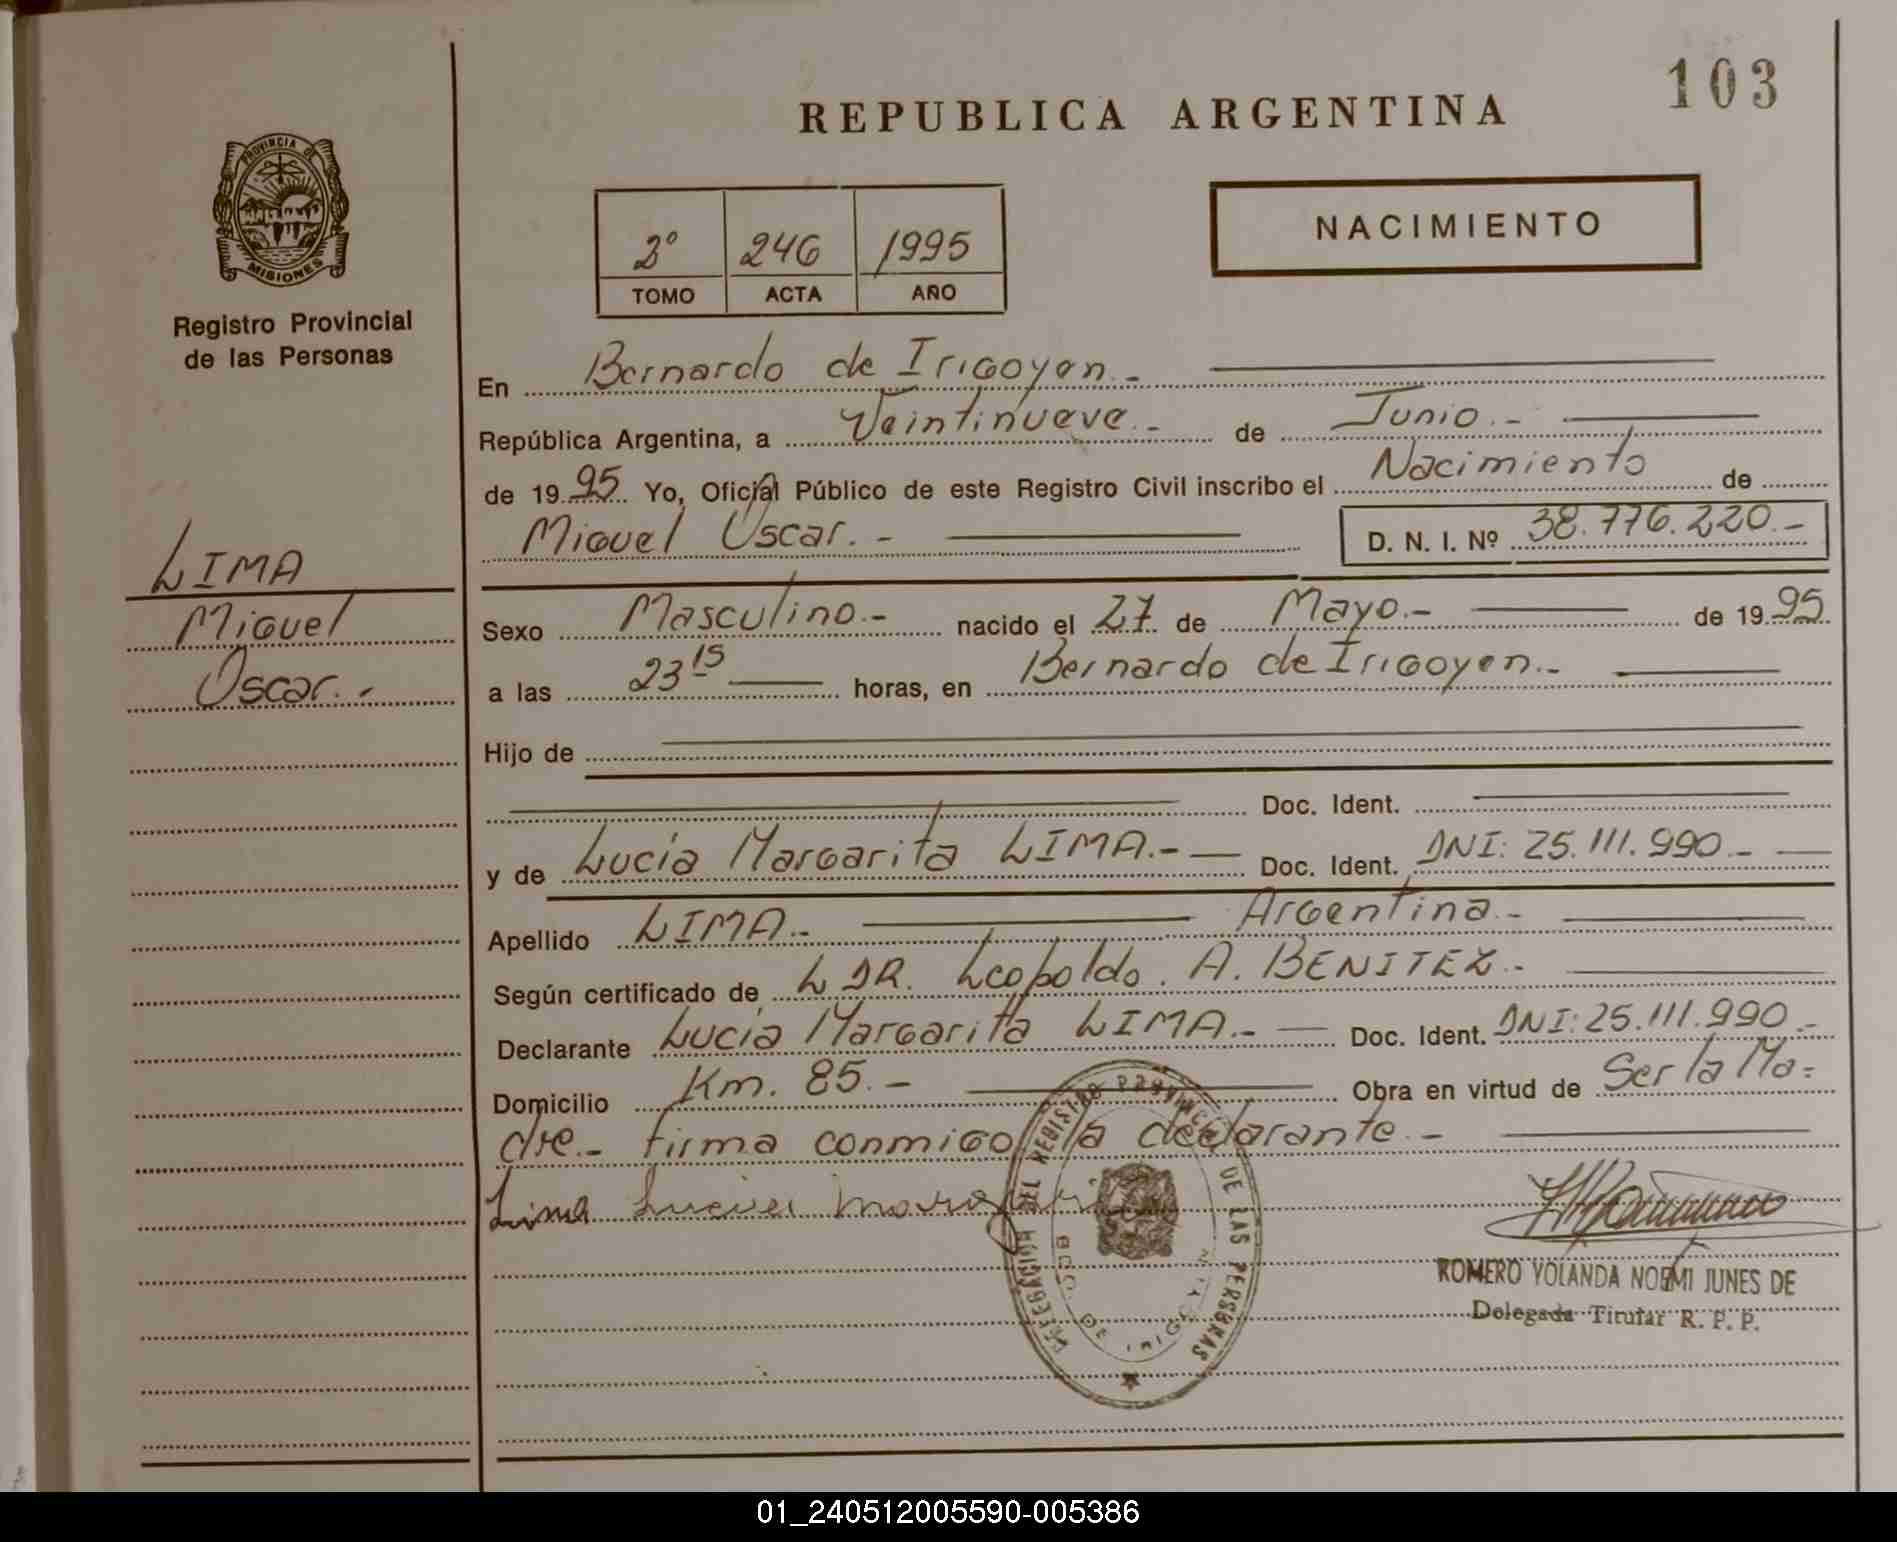 103
REPUBLICA ARGENTINA
PROVINCIA DE
MISIONES
Registro Provincial
de las Personas
2º 246 1995
TOMO ACTA AÑO
NACIMIENTO
En Bernardo de Irigoyen.-
República Argentina, a Veintinueve.- de Junio.-
de 1995 Yo, Oficial Público de este Registro Civil inscribo el Nacimiento de
Miguel Oscar.- D. N. I. Nº 38.776.220.-
LIMA
Miguel
Oscar.-
Sexo Masculino.- nacido el 27 de Mayo.- de 1995
a las 23 15 horas, en Bernardo de Irigoyen.-
Hijo de
Doc. Ident.
y de Lucia Margarita LIMA.- Doc. Ident. DNI: 25.111.990.-
Apellido LIMA.- Argentina.-
Según certificado de LDR. Leopoldo. A. BENITEZ.-
Declarante Lucia Margarita LIMA.- Doc. Ident. DNI: 25.111.990.-
Domicilio Km. 85.- Obra en virtud de Ser la Ma=
dre.- firma conmigo la declarante.-
Lima Lucia
DELEGACION DEL REGISTRO PROVINCIAL DE LAS PERSONAS
BDO. DE IRIGOYEN
ROMERO YOLANDA NOEMI JUNES DE
Delegada Titular R. P. P.
01_240512005590-005386